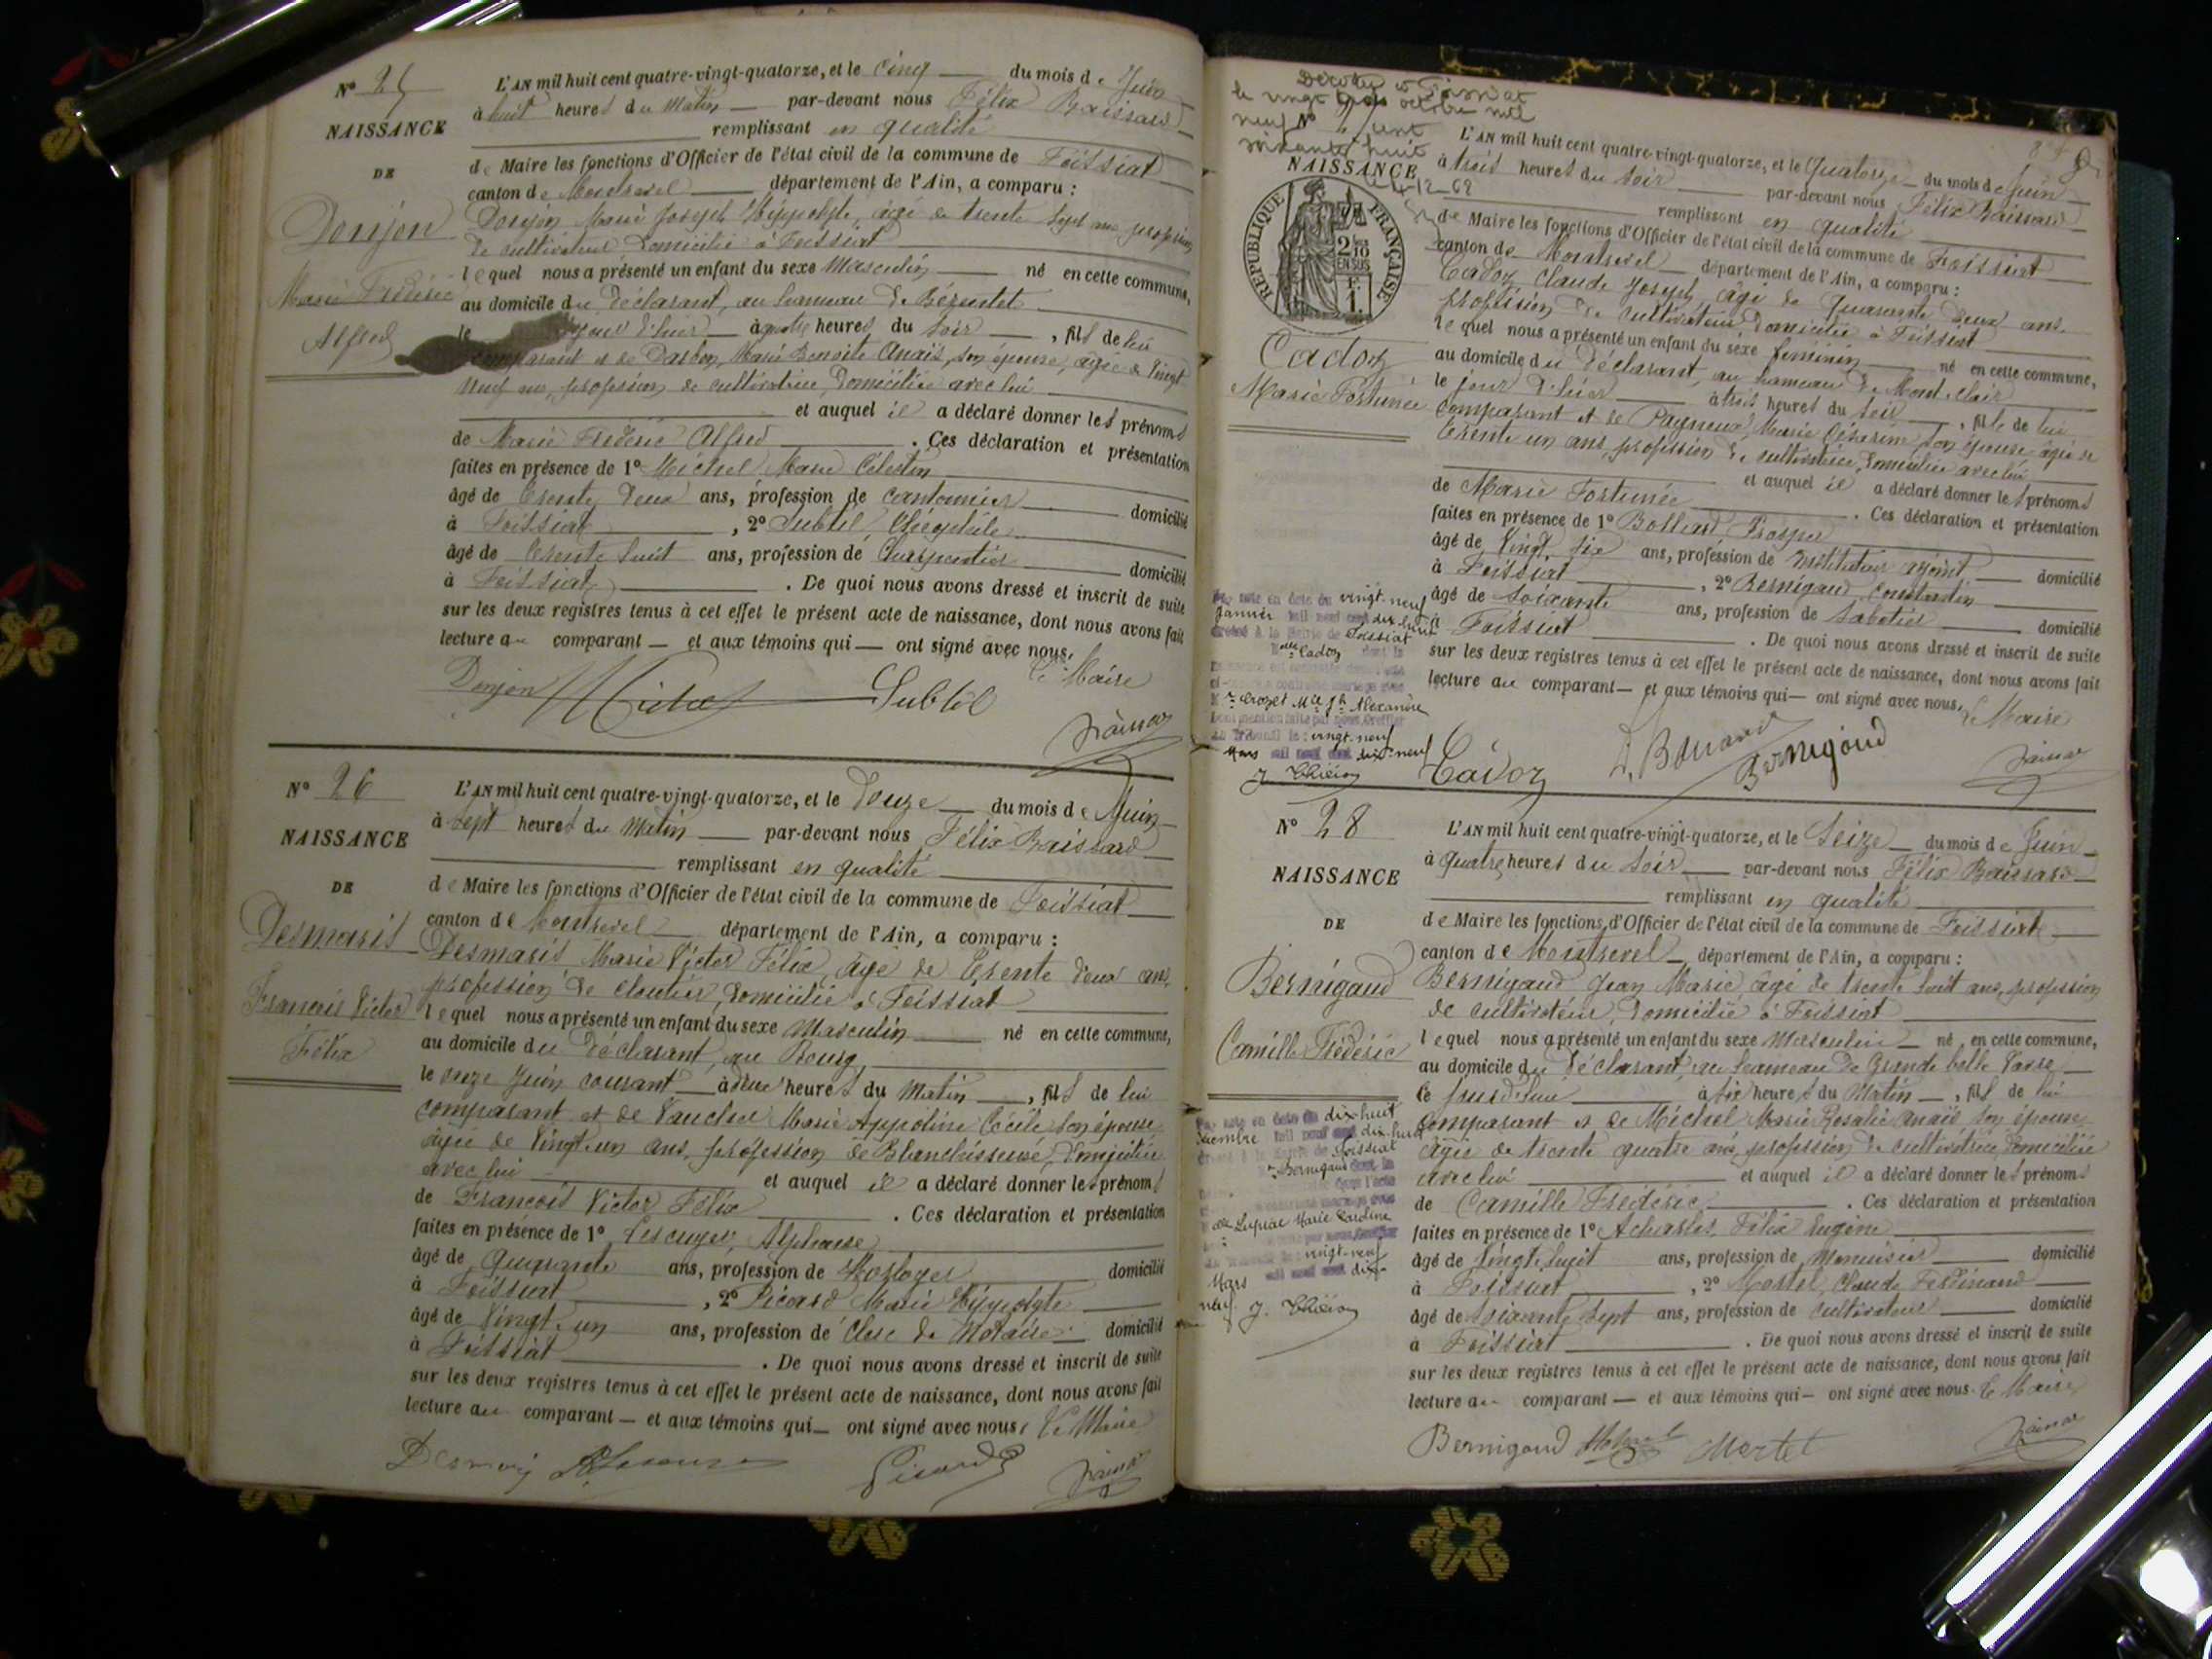 N° 25
NAISSANCE
DE
Donjon
Marie Frédéric
Alfred
L'AN mil huit cent quatre-vingt-quatorze, et le Cinq du mois de Juin
à huit heures du Matin par-devant nous Félix
remplissant en qualité
de Maire les fonctions d'Officier de l'état civil de la commune de Foissiat
canton de Montrevel département de l'Ain, a comparu :
Donjon Marie Joseph Hippolyte, âgé de trente sept ans profession
de cultivateur domicilié à Foissiat
lequel nous a présenté un enfant du sexe Masculin né en cette commune,
au domicile du déclarant, au hameau de
le jour d'hier à quatre heures du soir, fils de lui
comparant et de Marie Benoite Anaïs, son épouse, âgée de Vingt
neuf ans, profession de cultivatrice, domiciliée avec lui
et auquel il a déclaré donner les prénoms
de Marie Frédéric Alfred . Ces déclaration et présentation
faites en présence de 1° Michel Marie Célestin
âgé de trente deux ans, profession de cantonnier domicilié
à Foissiat, 2° Subtil, Théophile
âgé de trente huit ans, profession de Charpentier domicilié
à Foissiat . De quoi nous avons dressé et inscrit de suite
sur les deux registres tenus à cet effet le présent acte de naissance, dont nous avons fait
lecture au comparant — et aux témoins qui — ont signé avec nous,
Le Maire
Donjon Michel Subtil
N° 26
NAISSANCE
DE
Desmaris
François Victor
Félix
L'AN mil huit cent quatre-vingt-quatorze, et le Douze du mois de Juin
à Sept heures du Matin par-devant nous Félix
remplissant en qualité
de Maire les fonctions d'Officier de l'état civil de la commune de Foissiat
canton de Montrevel département de l'Ain, a comparu :
Desmaris Marie Victor Félix, âgé de trente deux ans,
profession de cloutier, domicilié à Foissiat
lequel nous a présenté un enfant du sexe Masculin né en cette commune,
au domicile du déclarant, au Bourg
le onze Juin courant à deux heures du Matin, fils de lui
comparant et de Marie Appoline Cécile son épouse
âgée de Vingt un ans, profession de Blanchisseuse, domiciliée
avec lui et auquel il a déclaré donner les prénoms
de François Victor Félix . Ces déclaration et présentation
faites en présence de 1° Lescuyer, Alphonse
âgé de quarante ans, profession de Horloger domicilié
à Foissiat, 2° Picard Marie Hippolyte
âgé de Vingt un ans, profession de Clerc de Notaire domicilié
à Foissiat . De quoi nous avons dressé et inscrit de suite
sur les deux registres tenus à cet effet le présent acte de naissance, dont nous avons fait
lecture au comparant — et aux témoins qui — ont signé avec nous, Le Maire
Picard
Décédée à Foissiat
le vingt octobre mil
neuf cent
soixante huit
4-12-68
N° 27
NAISSANCE
RÉPUBLIQUE FRANÇAISE
2/10
EN SUS
Cadoz
Marie Fortunée
L'AN mil huit cent quatre-vingt-quatorze, et le Quatorze du mois de Juin
à trois heures du soir par-devant nous Félix
remplissant en qualité
de Maire les fonctions d'Officier de l'état civil de la commune de Foissiat
canton de Montrevel département de l'Ain, a comparu :
Cadoz Claude Joseph, âgé de Quarante deux ans
profession de cultivateur domicilié à Foissiat
lequel nous a présenté un enfant du sexe féminin né en cette commune,
au domicile du déclarant, au hameau de Mont-clair
le jour d'hier à trois heures du soir, fille de lui
comparant et de Marie Césarine, son épouse âgée de
trente un ans, profession de cultivatrice, domiciliée avec lui
et auquel il a déclaré donner les prénoms
de Marie Fortunée . Ces déclaration et présentation
faites en présence de 1° Prosper
âgé de Vingt six ans, profession de Instituteur adjoint domicilié
à Foissiat, 2° Bernigaud Constantin
âgé de soixante ans, profession de Sabotier domicilié
à Foissiat . De quoi nous avons dressé et inscrit de suite
sur les deux registres tenus à cet effet le présent acte de naissance, dont nous avons fait
lecture au comparant — et aux témoins qui — ont signé avec nous, Le Maire
Cadoz Bernigaud
vingt-neuf
Janvier mil neuf cent dix-neuf
à la Mairie de Foissiat
Melle Cadoz
Mr Crozet Alexandre
vingt-neuf
Mars mil neuf cent dix-neuf
N° 28
NAISSANCE
DE
Bernigaud
Camille Frédéric
L'AN mil huit cent quatre-vingt-quatorze, et le Seize du mois de Juin
à quatre heures du soir par-devant nous Félix
remplissant en qualité
de Maire les fonctions d'Officier de l'état civil de la commune de Foissiat
canton de Montrevel, département de l'Ain, a comparu :
Bernigaud Jean Marie âgé de trente huit ans, profession
de cultivateur, domicilié à Foissiat
lequel nous a présenté un enfant du sexe Masculin né en cette commune,
au domicile du Déclarant, au hameau de Grande belle Vavre
à six heures du Matin, fils de lui
comparant et de Michel Marie Rosalie Anaïs son épouse
âgée de trente quatre ans, profession de cultivatrice domiciliée
avec lui et auquel il a déclaré donner les prénoms
de Camille Frédéric . Ces déclaration et présentation
faites en présence de 1° Félix Eugène
âgé de Vingt huit ans, profession de Menuisier domicilié
à Foissiat, 2° Mortel Claude Ferdinand
âgé de sept ans, profession de cultivateur domicilié
à Foissiat . De quoi nous avons dressé et inscrit de suite
sur les deux registres tenus à cet effet le présent acte de naissance, dont nous avons fait
lecture au comparant — et aux témoins qui — ont signé avec nous. Le Maire
Bernigaud Mortel
dix-huit
décembre mil neuf cent dix-huit
à la Mairie de Foissiat
Mr Bernigaud
Marie
vingt-neuf
Mars mil neuf cent dix-
neuf